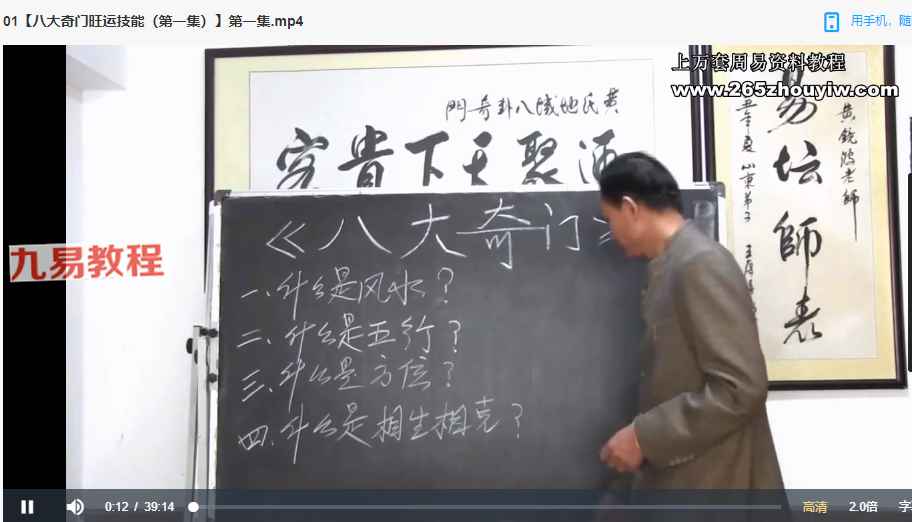 01【八大奇门旺运技能（第一集）】第一集.mp4
用手机，随
上万套周易资料教程
www.265zhouyiw.com
門奇卦八域地氏黄
客貴下天聚酒
易坛師表
黄鏡波老師
山東弟子
九易教程
《八大奇门》
一、什么是风水？
二、什么是五行？
三、什么是方位？
四、什么是相生相克？
0:12 / 39:14
高清
2.0倍
字